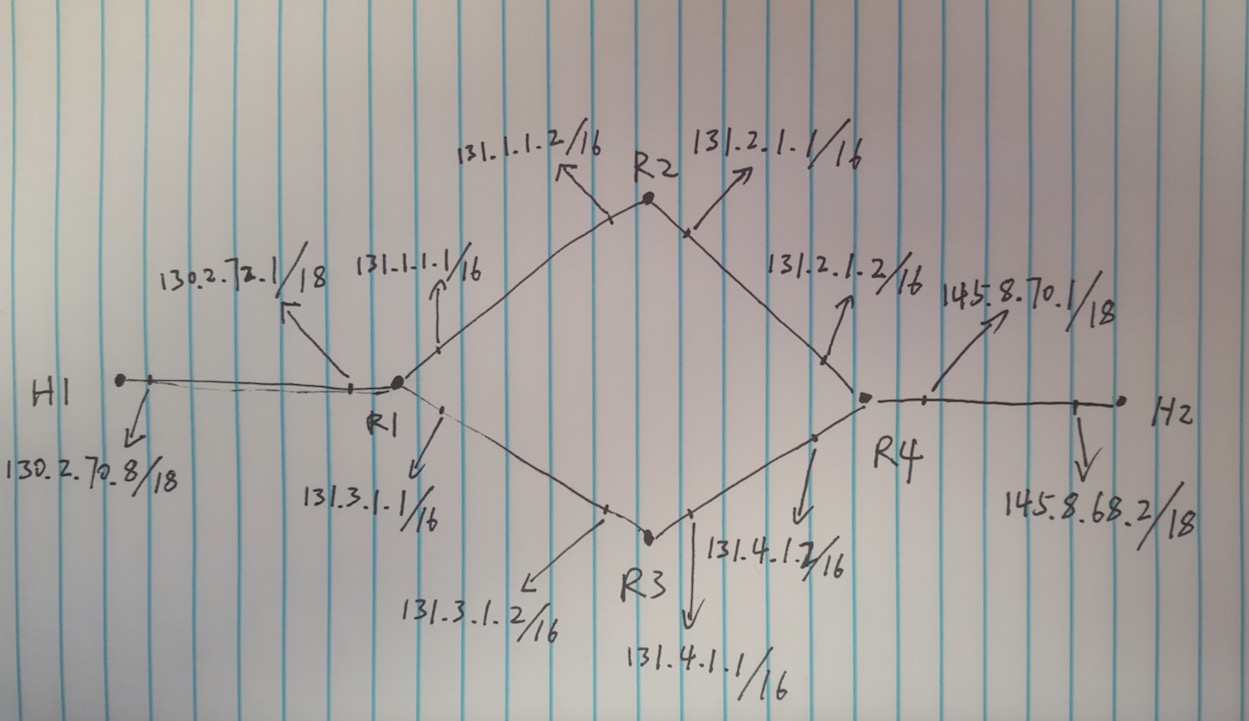 131.1.1.2/16
R2
131.2.1.1/16
130.2.72.1/18
131.1.1.1/16
131.2.1.2/16
145.8.70.1/18
H1
R1
R4
H2
130.2.70.8/18
131.3.1.1/16
145.8.68.2/18
131.4.1.2/16
R3
131.3.1.2/16
131.4.1.1/16